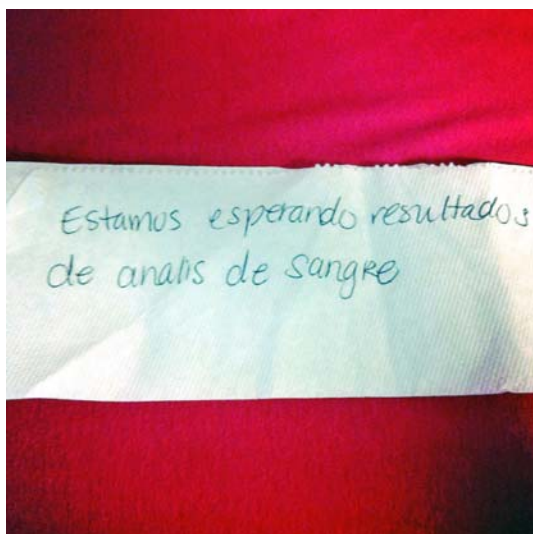 Estamos esperando resultados
de analis de sangre